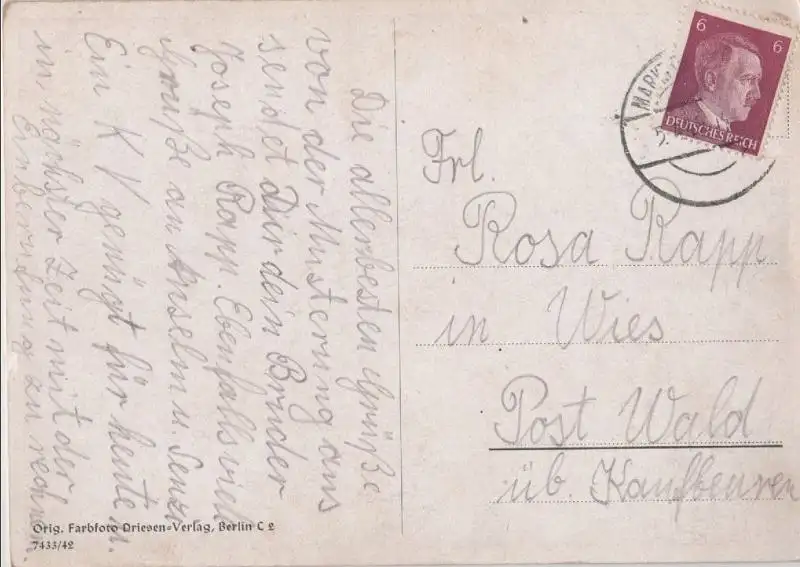 Die allerbesten Grüße
von der Musterung aus
sendet Dir dein Bruder
Joseph Rapp. Ebenfalls viele
Grüße an Anselm u. Senzi
Ein KV genügt für heute u.
in nächster Zeit mit der
Einberufung zu rechnen.
6 6
DEUTSCHES REICH
MARK
Frl.
Rosa Rapp
in Wies
Post Wald
üb. Kaufbeuren
Orig. Farbfoto Driesen-Verlag, Berlin C 2
7433/42